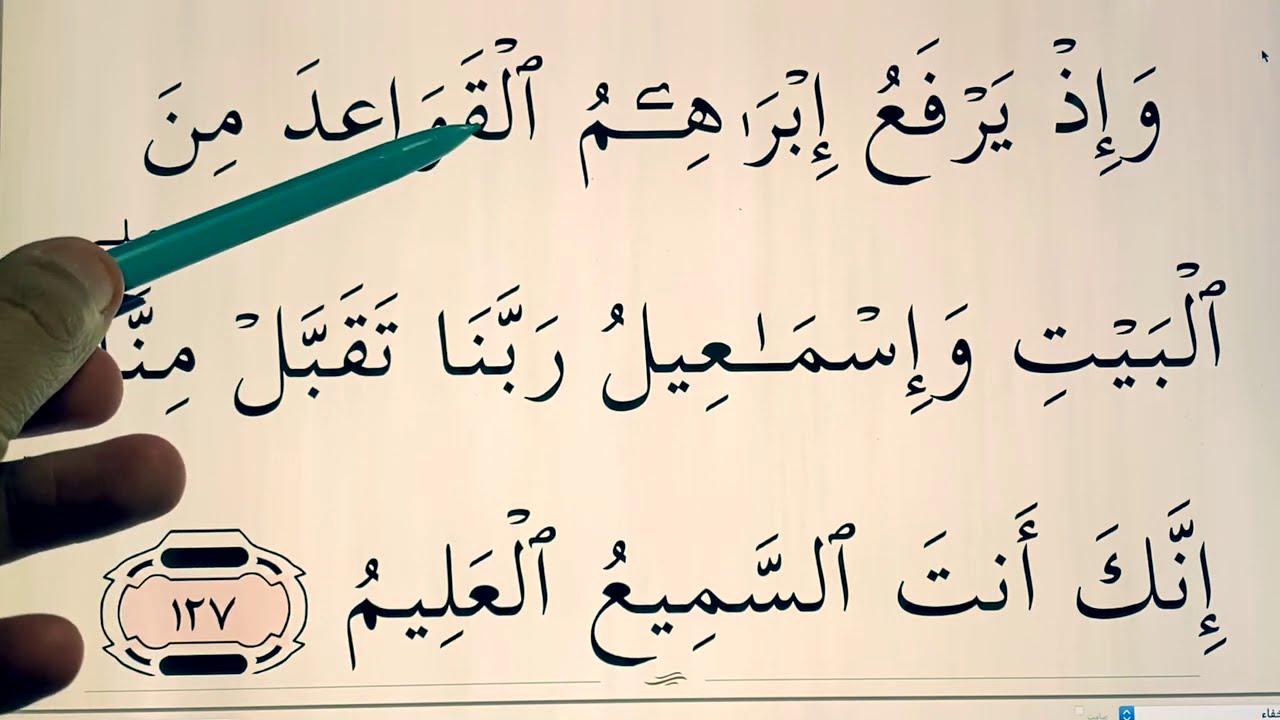 وَإِذْ يَرْفَعُ إِبْرَٰهِـۧمُ ٱلْقَوَاعِدَ مِنَ
ٱلْبَيْتِ وَإِسْمَـٰعِيلُ رَبَّنَا تَقَبَّلْ مِنَّا
إِنَّكَ أَنتَ ٱلسَّمِيعُ ٱلْعَلِيمُ ١٢٧